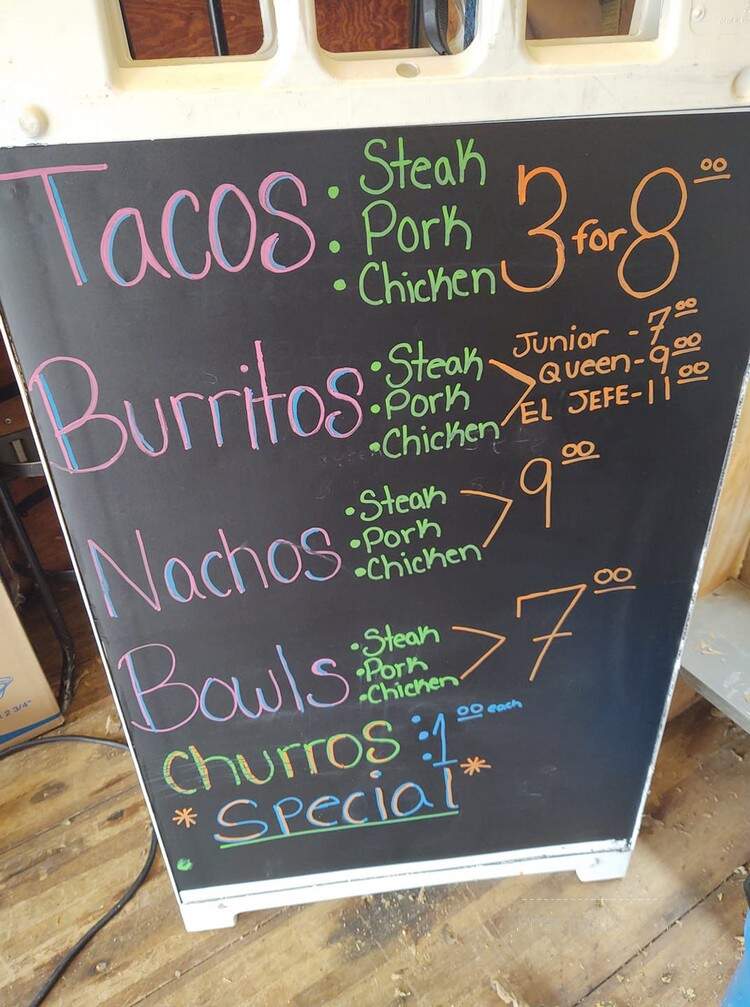 Tacos: • Steak
• Pork
• Chicken
3 for 8 00
Burritos • Steak
• Pork
• Chicken
Junior - 7 00
Queen - 9 00
EL JEFE - 11 00
Nachos • Steak
• Pork
• Chicken
9 00
Bowls • Steak
• Pork
• Chicken
7 00
Churros : 1 00 each
* Special *
2 3/4"